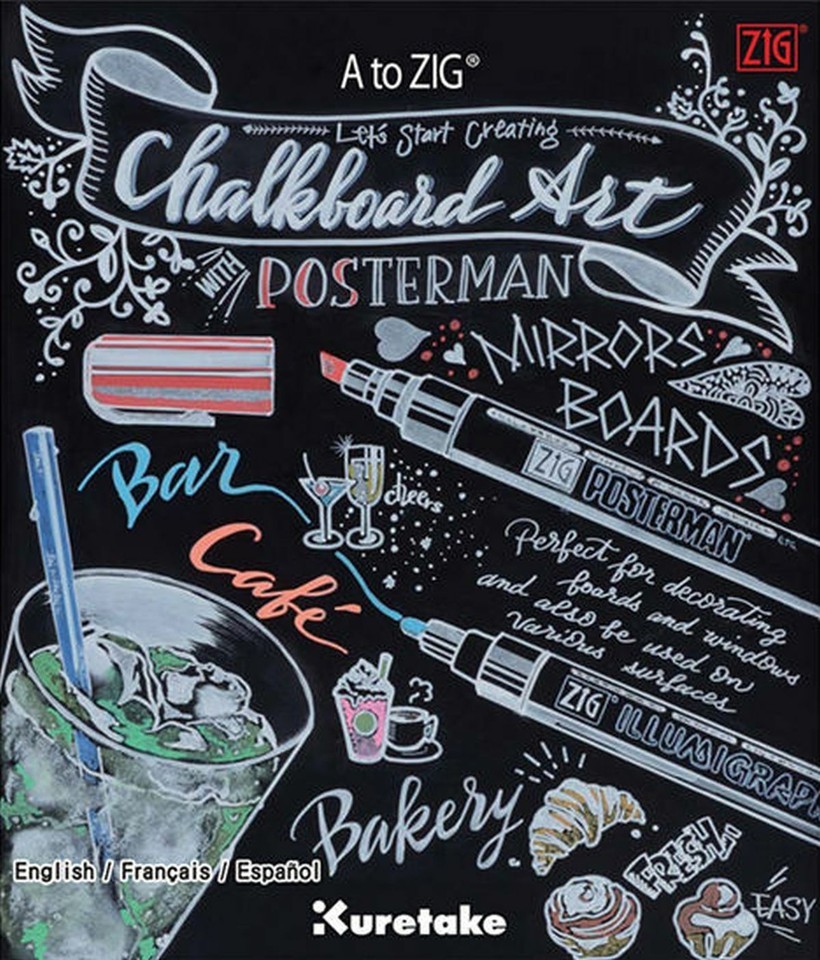 ZIG®
A to ZIG®
Let's Start Creating
Chalkboard Art
WITH
POSTERMAN
MIRRORS
BOARDS
ZIG
POSTERMAN®
Bar
cheers
Café
Perfect for decorating
boards and windows
and also be used on
various surfaces
ZIG®
ILLUMIGRAPH
Bakery
FRESH
EASY
English / Français / Español
Kuretake